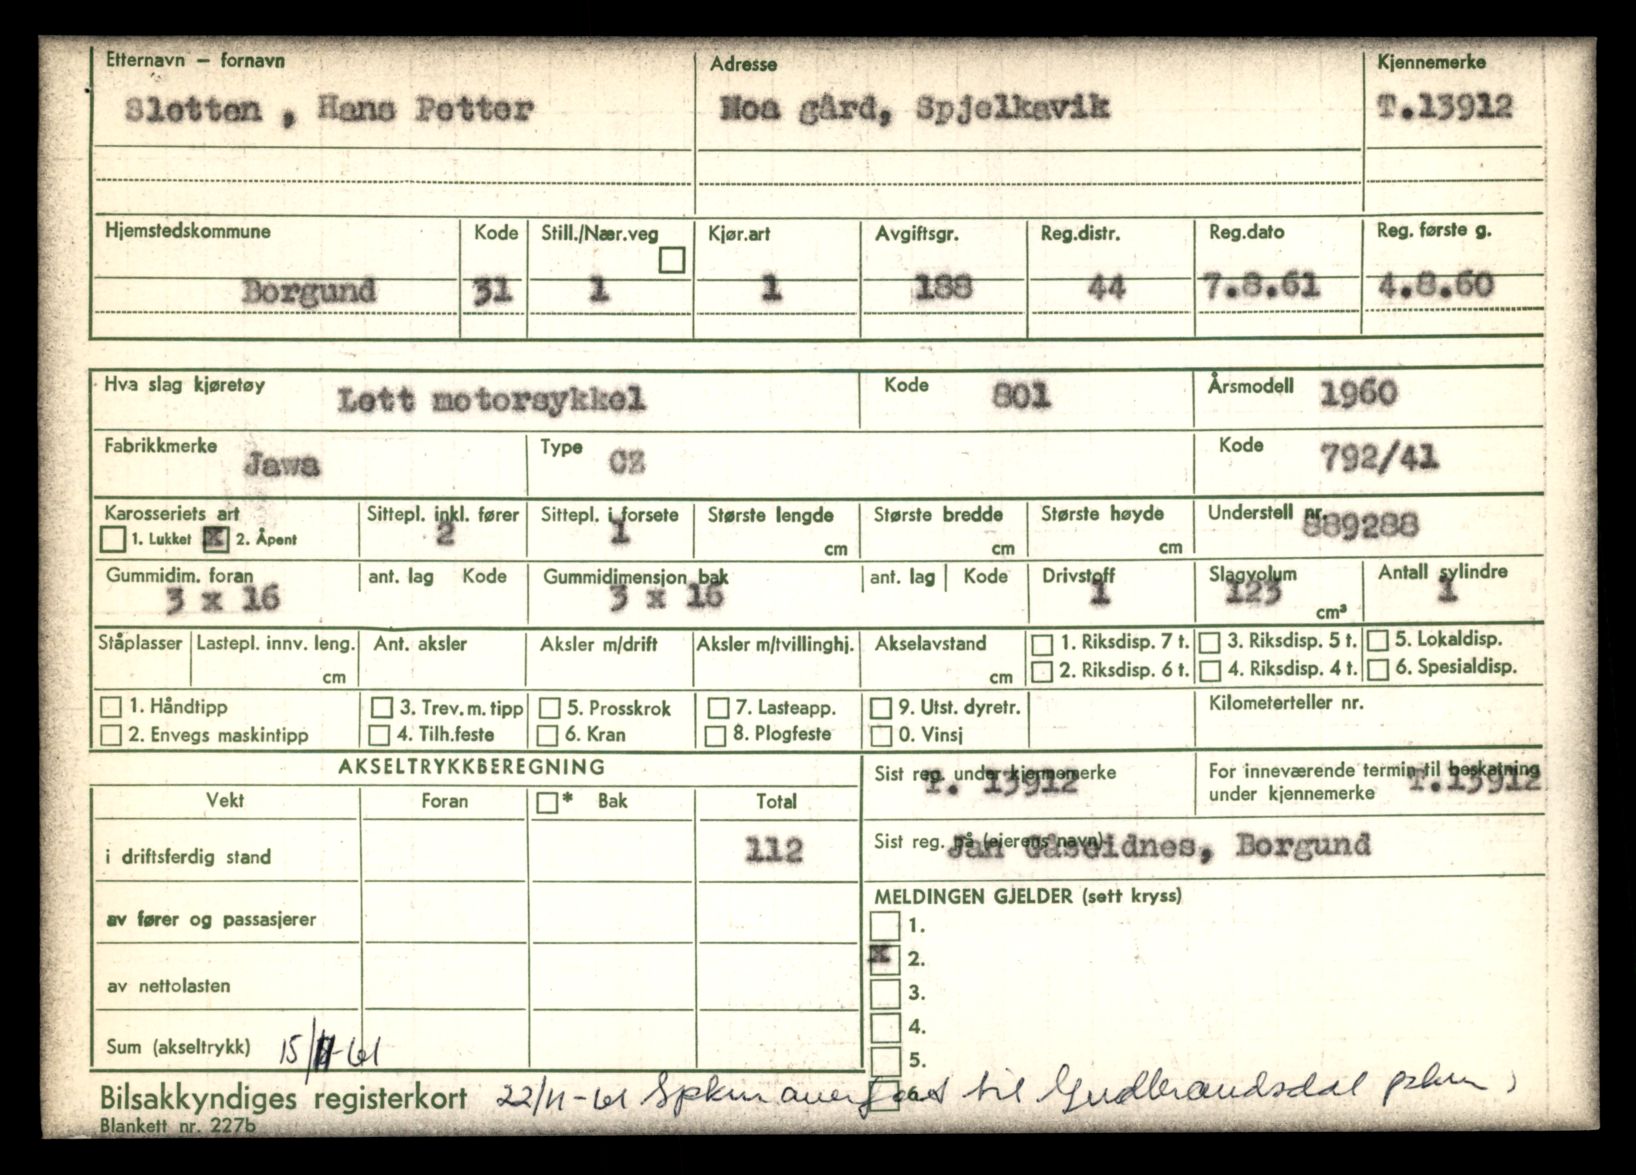 Etternavn – fornavn Adresse Kjennemerke
Sletten , Hans Petter Moa gård, Spjelkavik T.13912
Hjemstedskommune Kode Still./Nær.veg Kjør.art Avgiftsgr. Reg.distr. Reg.dato Reg. første g.
Borgund 31 1 1 188 44 7.8.61 4.8.60
Hva slag kjøretøy Lett motorsykkel Kode 801 Årsmodell 1960
Fabrikkmerke Jawa Type CZ Kode 792/41
Karosseriets art Sittepl. inkl. fører Sittepl. i forsete Største lengde Største bredde Største høyde Understell nr.
1. Lukket X 2. Åpent 2 1 cm cm cm 889288
Gummidim. foran ant. lag Kode Gummidimensjon bak ant. lag Kode Drivstoff Slagvolum Antall sylindre
3 x 16 3 x 16 1 123 cm³ 1
Ståplasser Lastepl. innv. leng. Ant. aksler Aksler m/drift Aksler m/tvillinghj. Akselavstand 1. Riksdisp. 7 t. 3. Riksdisp. 5 t. 5. Lokaldisp.
cm cm 2. Riksdisp. 6 t. 4. Riksdisp. 4 t. 6. Spesialdisp.
1. Håndtipp 3. Trev. m. tipp 5. Prosskrok 7. Lasteapp. 9. Utst. dyretr. Kilometerteller nr.
2. Envegs maskintipp 4. Tilh.feste 6. Kran 8. Plogfeste 0. Vinsj
AKSELTRYKKBEREGNING Sist reg. under kjennemerke T. 13912 For inneværende termin til beskatning
under kjennemerke T.13912
Vekt Foran * Bak Total
i driftsferdig stand 112 Sist reg. på (eierens navn) Jan Gåseidnes, Borgund
MELDINGEN GJELDER (sett kryss)
av fører og passasjerer 1.
X 2.
av nettolasten 3.
4.
Sum (akseltrykk) 15/11-61 5.
6.
Bilsakkyndiges registerkort 22/11-61 til Gudbrandsdal
Blankett nr. 227b